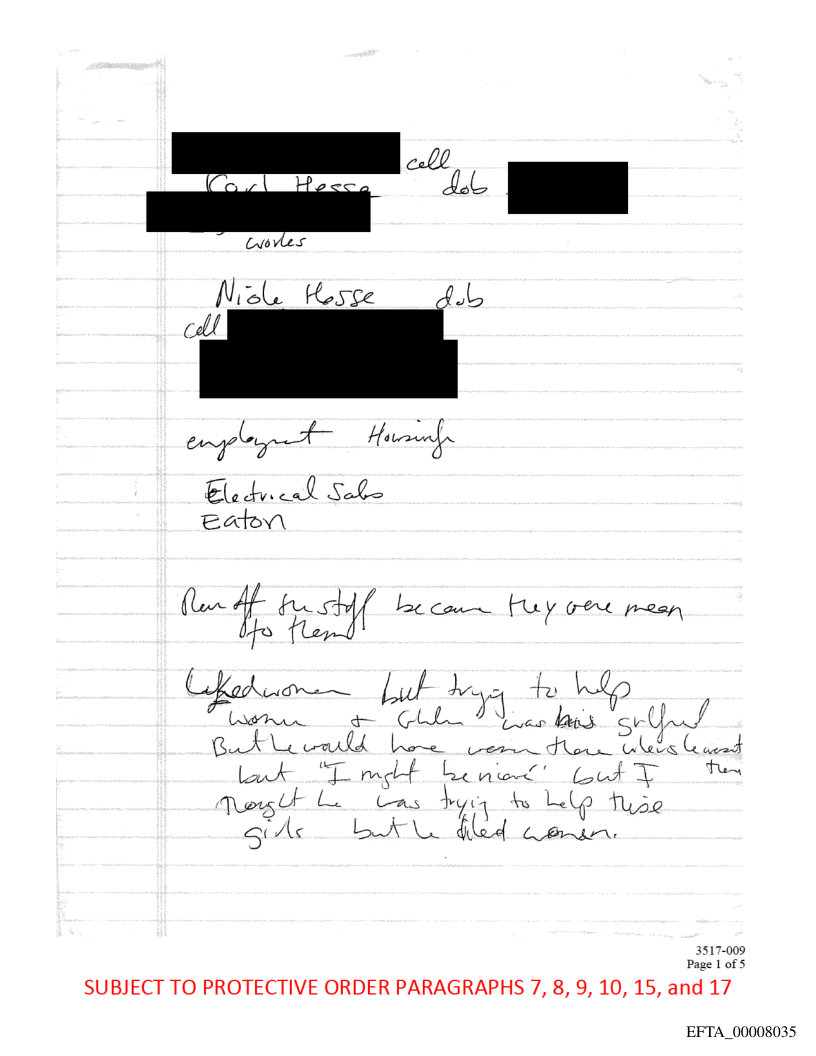 cell
Karl Hesse dob
works
Nicole Hesse dob
cell
employment Housing
Electrical Sales
Eaton
Run off the staff because they were mean
to them
Liked women but trying to help
women + was his girlfrnd
But he would have women there when she wasnt
but "I might be " but I there
thought he was trying to help these
girls but he liked women.
3517-009
Page 1 of 5
SUBJECT TO PROTECTIVE ORDER PARAGRAPHS 7, 8, 9, 10, 15, and 17
EFTA_00008035